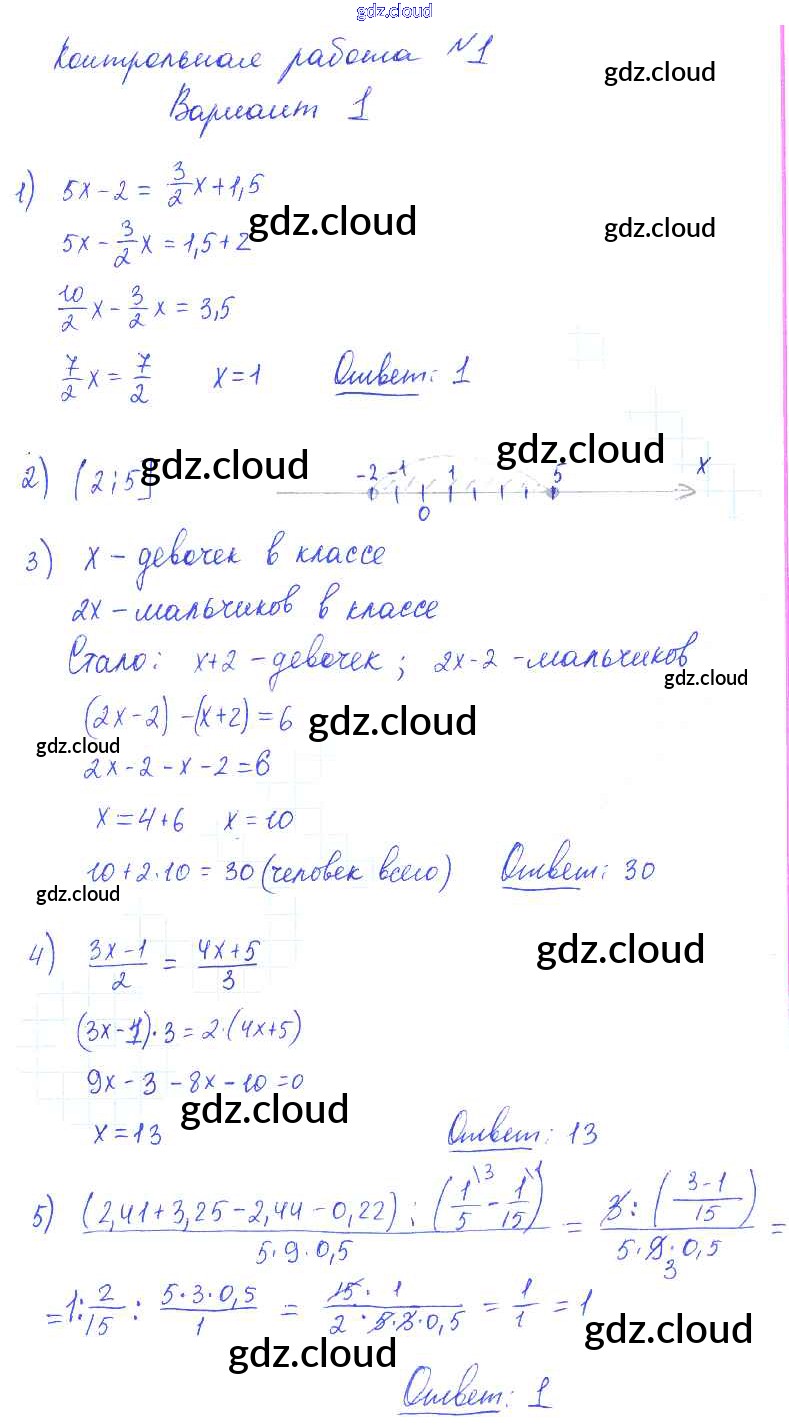 gdz.cloud
Контрольная работа №1
gdz.cloud
Вариант 1
1) 5x-2 = 3/2 x+1,5
gdz.cloud gdz.cloud
5x - 3/2 x = 1,5+2
10/2 x - 3/2 x = 3,5
7/2 x = 7/2 x=1 Ответ: 1
2) (2;5] gdz.cloud -2 -1 0 1 5 x gdz.cloud
3) x - девочек в классе
2x - мальчиков в классе
Стало: x+2 - девочек; 2x-2 - мальчиков
gdz.cloud
(2x-2) -(x+2) = 6 gdz.cloud
gdz.cloud
2x-2-x-2=6
x=4+6 x=10
10+2·10 = 30 (человек всего) Ответ: 30
gdz.cloud
4) (3x-1)/2 = (4x+5)/3 gdz.cloud
(3x-1)·3 = 2·(4x+5)
9x-3-8x-10=0
gdz.cloud
x=13 Ответ: 13
5) ((2,41+3,25-2,44-0,22) : (1/5\3 - 1/15\1))/(5·9·0,5) = (3 : ((3-1)/15))/(5·9·0,5) =
3
=1: 2/15 : (5·3·0,5)/1 = (15·1)/(2·5·3·0,5) = 1/1 = 1
gdz.cloud gdz.cloud
Ответ: 1